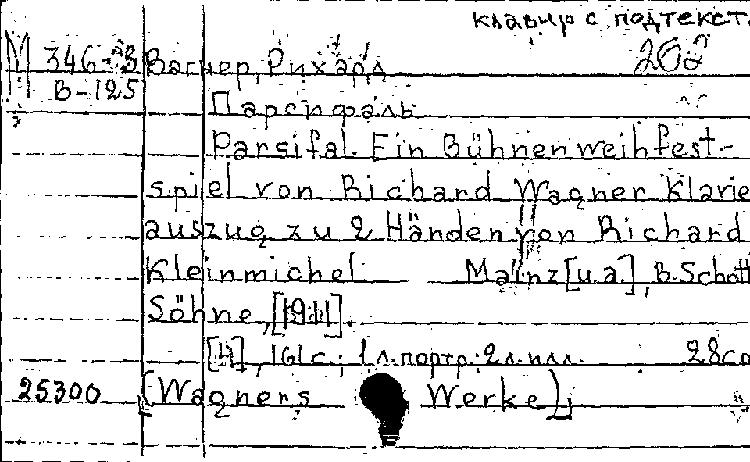 клавир с подтекст.
М 346-3 Вагнер, Рихард
В-125 Парсифаль
Parsifal. Ein Bühnenweihfest-
spiel von Richard Wagner Klavie
auszug zu 2 Händen von Richard
Kleinmichel Mainz [u.a.], B. Schott
Söhne,
[4], 161 с.; 1 л. портр; 2 л. илл. 28 см
25300 (Wagners Werke).